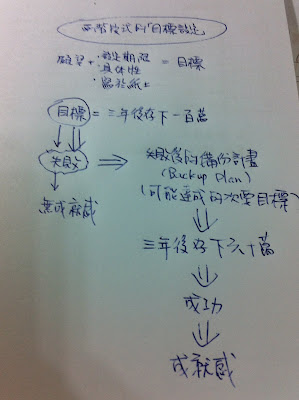 西幣段式的「目標設定」
願望+ ・設定期限 = 目標
・具体性
・寫於紙上
目標 = 三年後存下一百萬
失敗 ⇒ 失敗後的備份計畫
(Backup plan)
(可能達成的次要目標)
無成就感
三年後存下六十萬
成功
成就感